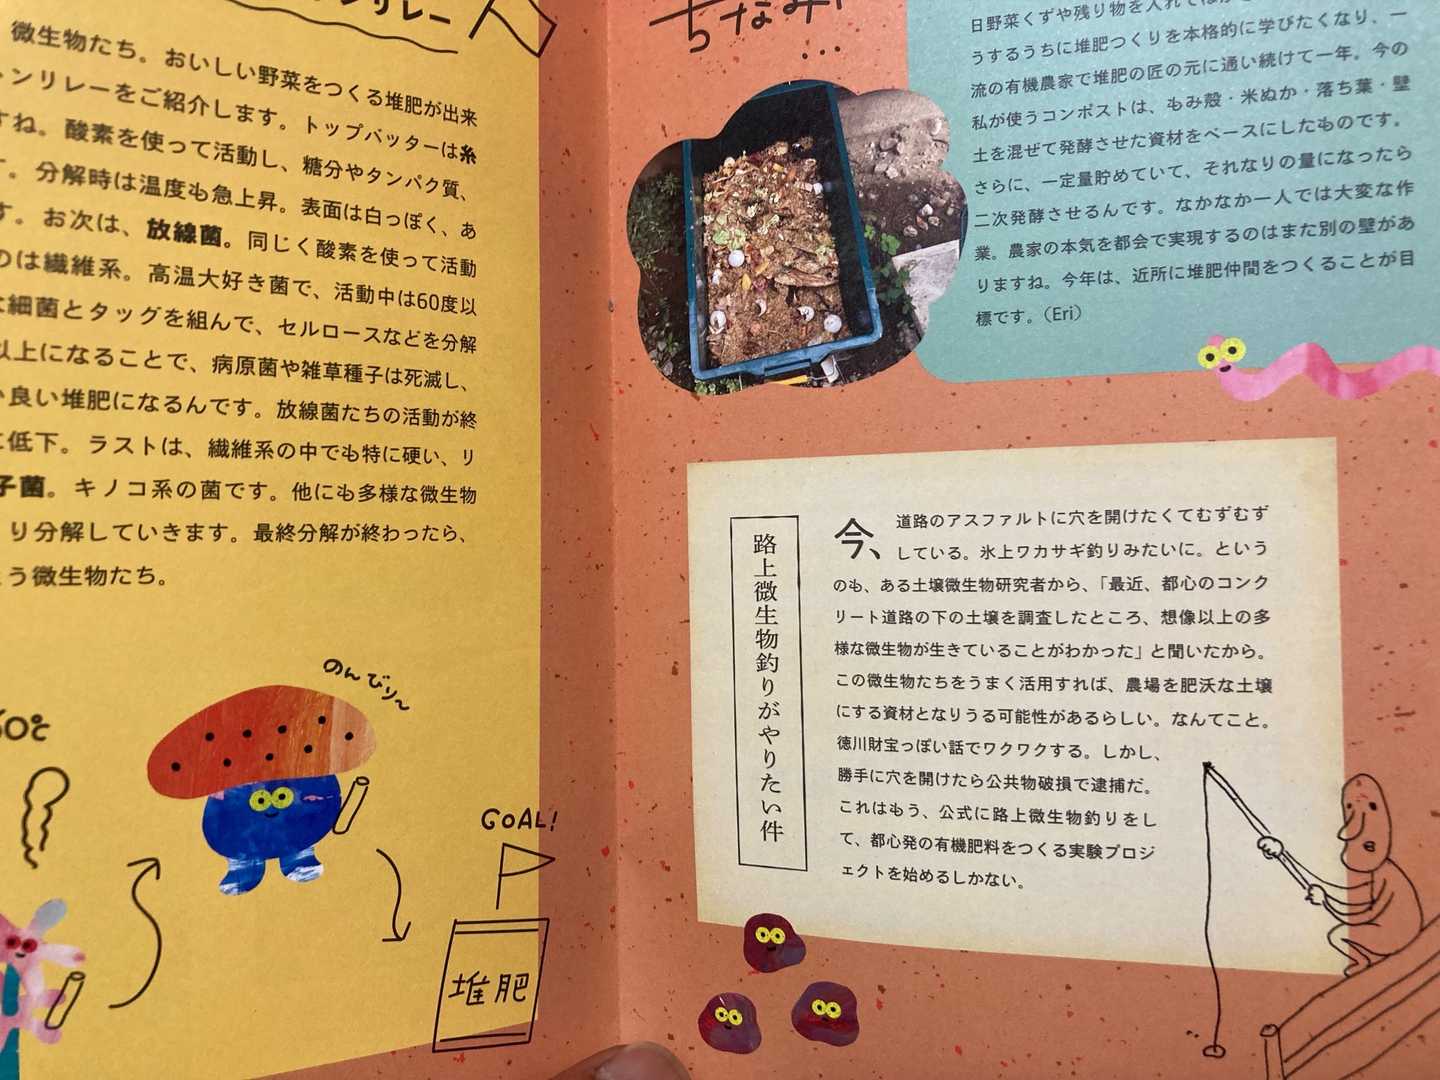 ンリレー
微生物たち。おいしい野菜をつくる堆肥が出来
ンリレーをご紹介します。トップバッターは糸
すね。酸素を使って活動し、糖分やタンパク質、
。分解時は温度も急上昇。表面は白っぽく、あ
す。お次は、放線菌。同じく酸素を使って活動
のは繊維系。高温大好き菌で、活動中は60度以
細菌とタッグを組んで、セルロースなどを分解
以上になることで、病原菌や雑草種子は死滅し、
良い堆肥になるんです。放線菌たちの活動が終
に低下。ラストは、繊維系の中でも特に硬い、リ
子菌。キノコ系の菌です。他にも多様な微生物
り分解していきます。最終分解が終わったら、
う微生物たち。
のんびり〜
60℃
GOAL!
堆肥
ちなみに
...
日野菜くずや残り物を入れて
うするうちに堆肥つくりを本格的に学びたくなり、一
流の有機農家で堆肥の匠の元に通い続けて一年。今の
私が使うコンポストは、もみ殻・米ぬか・落ち葉・壁
土を混ぜて発酵させた資材をベースにしたものです。
さらに、一定量貯めていて、それなりの量になったら
二次発酵させるんです。なかなか一人では大変な作
業。農家の本気を都会で実現するのはまた別の壁があ
りますね。今年は、近所に堆肥仲間をつくることが目
標です。（Eri）
路上微生物釣りがやりたい件
今、道路のアスファルトに穴を開けたくてむずむず
している。氷上ワカサギ釣りみたいに。という
のも、ある土壌微生物研究者から、「最近、都心のコンク
リート道路の下の土壌を調査したところ、想像以上の多
様な微生物が生きていることがわかった」と聞いたから。
この微生物たちをうまく活用すれば、農場を肥沃な土壌
にする資材となりうる可能性があるらしい。なんてこと。
徳川財宝っぽい話でワクワクする。しかし、
勝手に穴を開けたら公共物破損で逮捕だ。
これはもう、公式に路上微生物釣りをし
て、都心発の有機肥料をつくる実験プロジ
ェクトを始めるしかない。